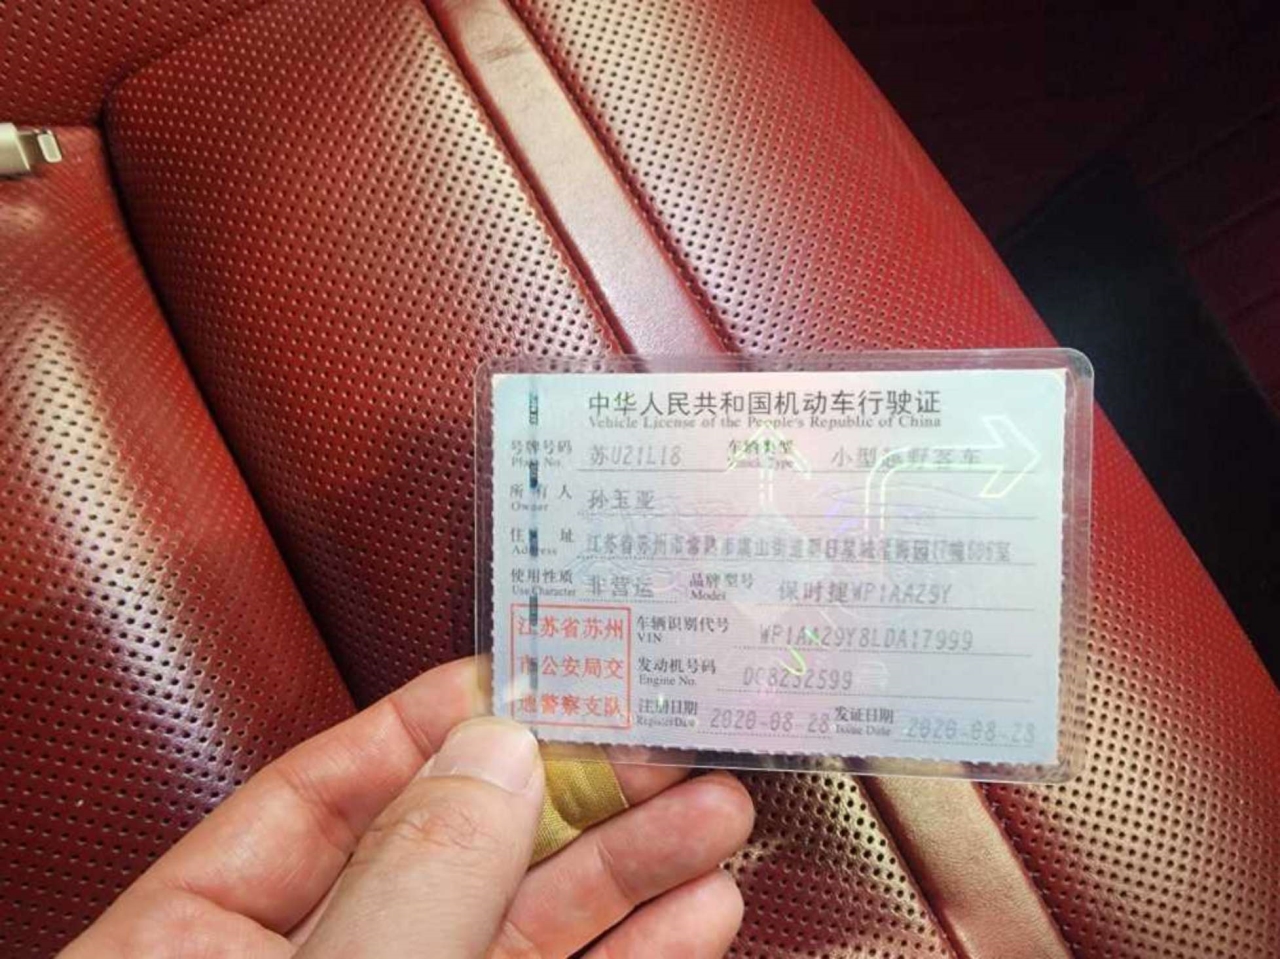 中华人民共和国机动车行驶证
Vehicle License of the People's Republic of China
号牌号码 苏U21L18 车辆类型 小型越野客车
Plate No. Vehicle Type
所有人 孙玉亚
Owner
住址 江苏省苏州市常熟市虞山街道
Address
使用性质 非营运 品牌型号 保时捷WP1AA29Y
Use Character Model
江苏省苏州 车辆识别代号 WP1AA29Y8LDA17999
VIN
市公安局交 发动机号码
Engine No.
通警察支队 注册日期 2020-08-28 发证日期 2020-08-28
Register Date Issue Date